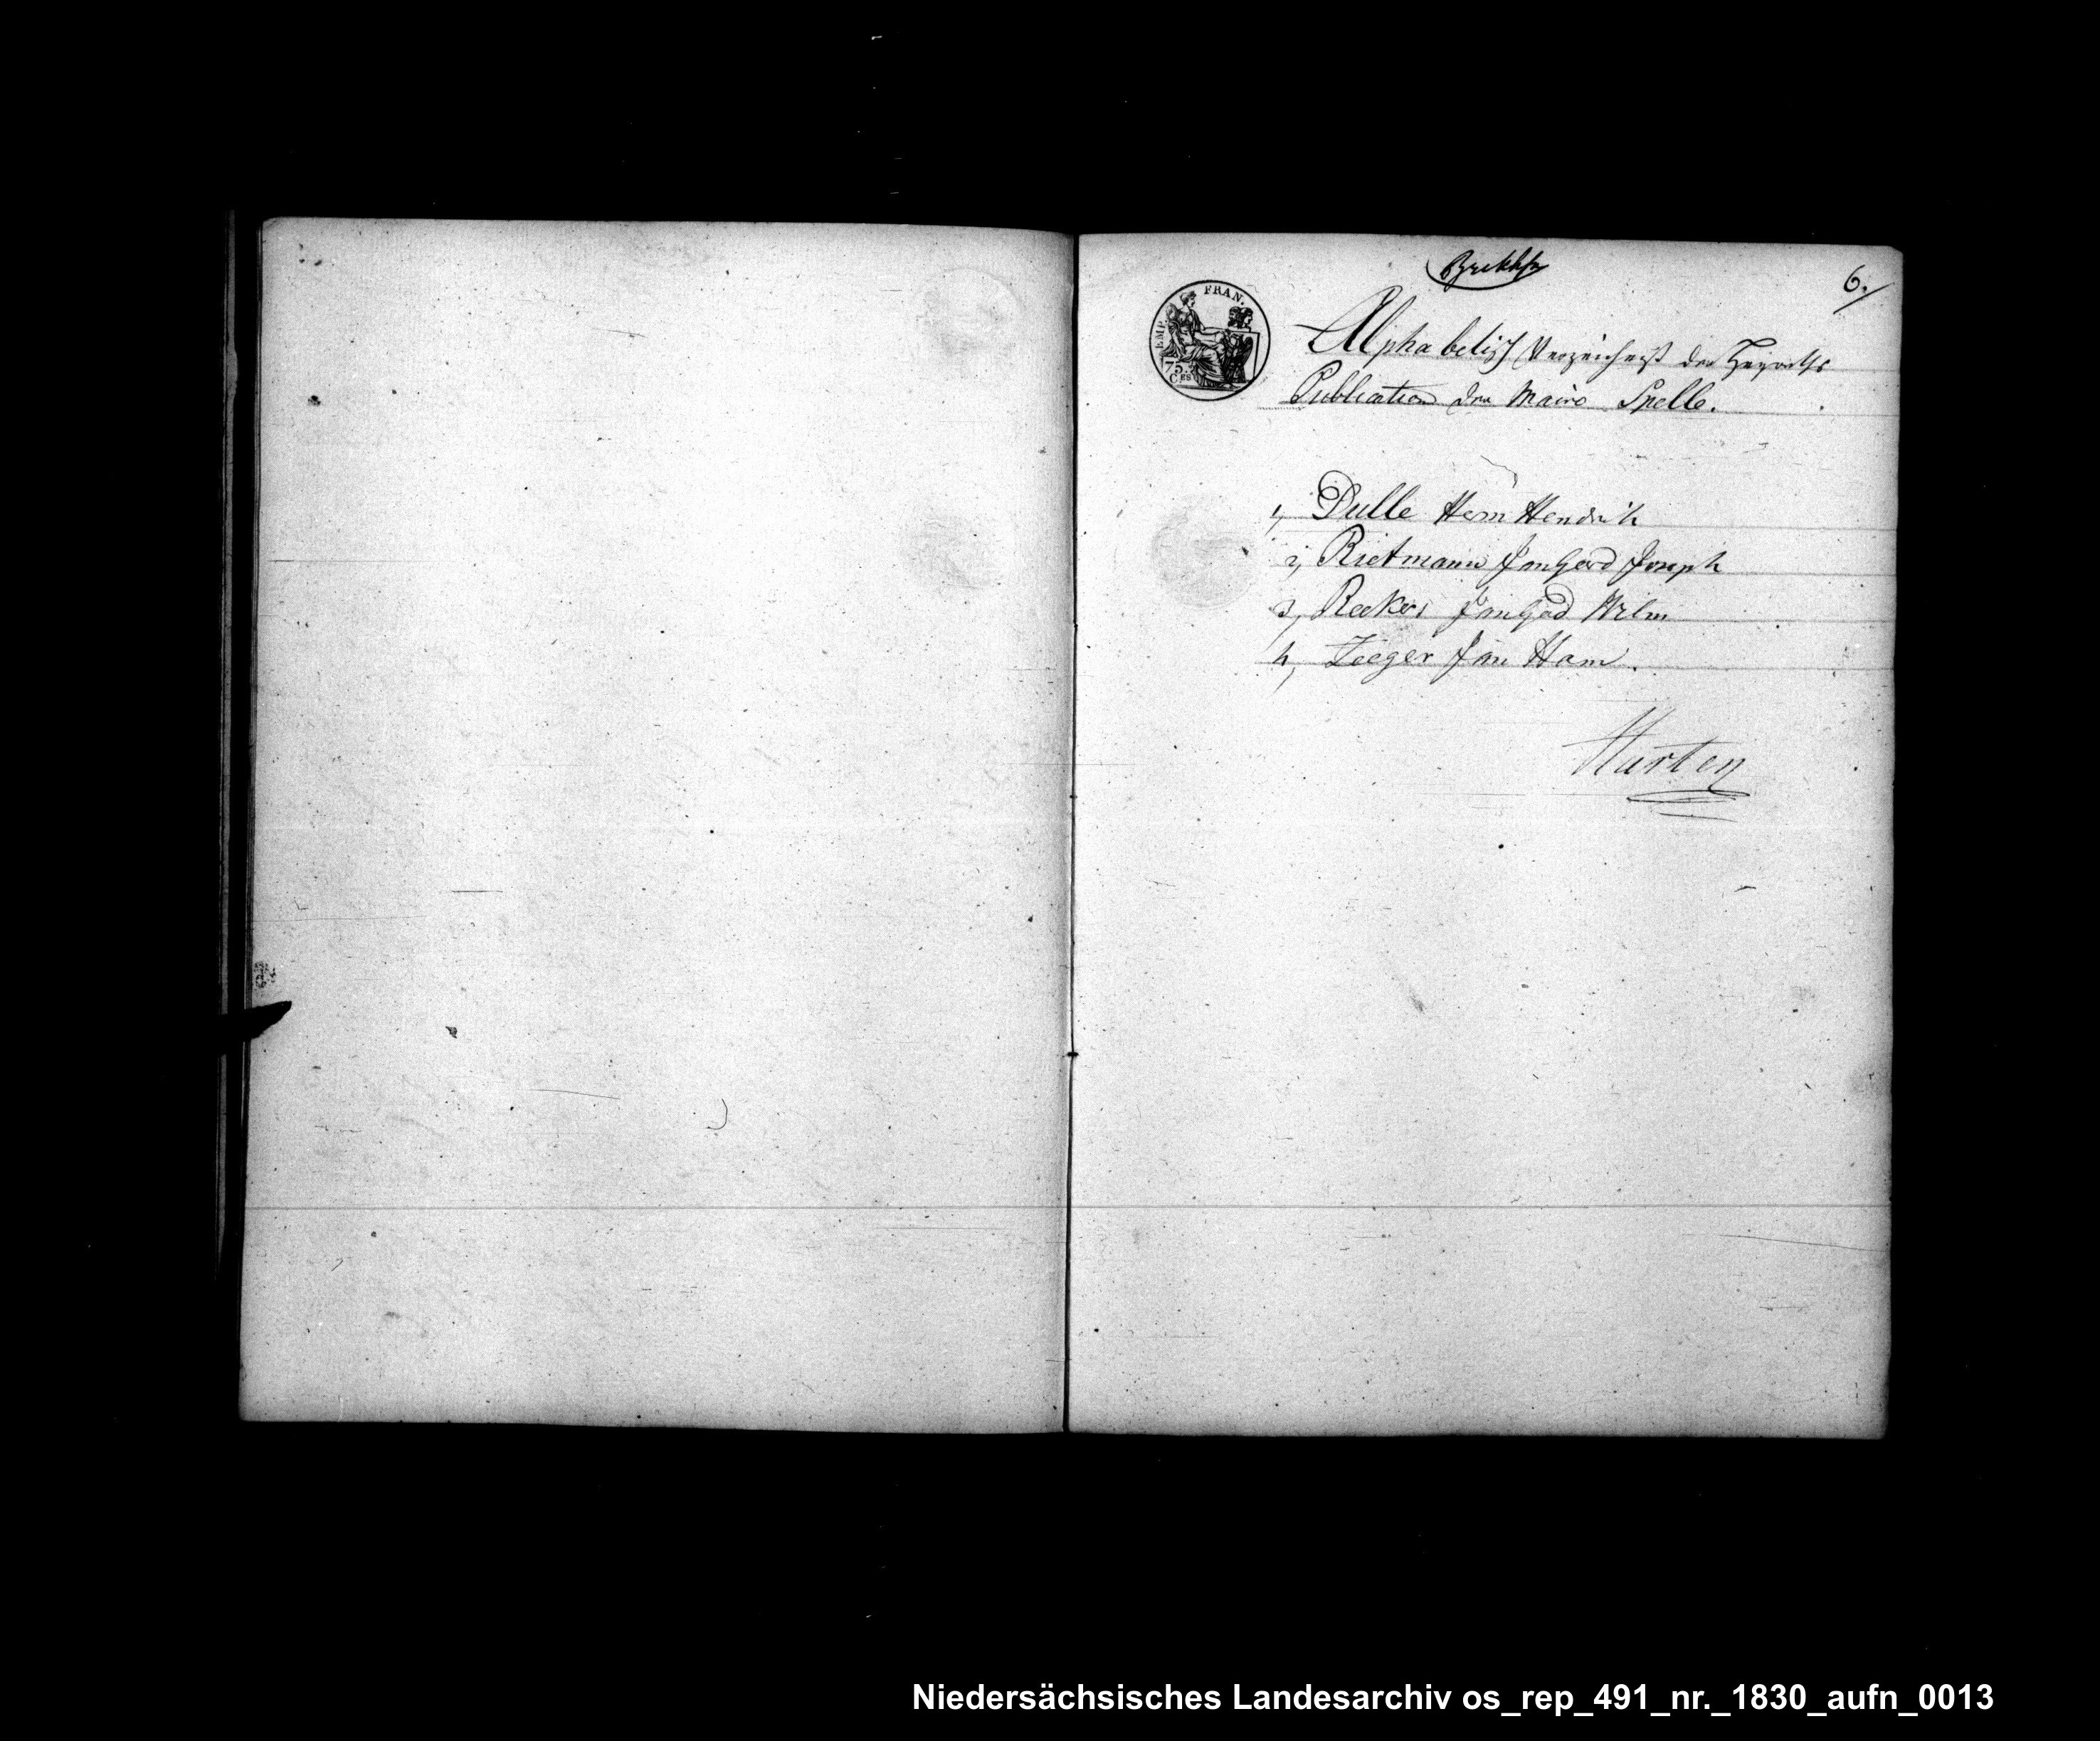 6.
EMP. FRAN.
75. CES
Alphabetisch Verzeichniß der Heyraths
Publication der Mairie Spelle.
1, Dulle Herm Hendrik
2, Rietmann Jan Gerd Joseph
3, Reekers Jan Gerd Wilm
4, Zeeger Jan Harm.
Harten
Niedersächsisches Landesarchiv os_rep_491_nr._1830_aufn_0013